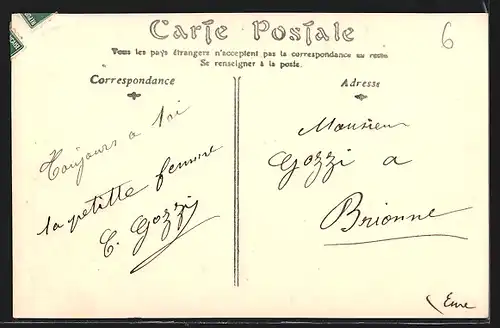 Carte Postale
Tous les pays étrangers n'acceptent pas la correspondance au recto
Se renseigner à la poste.
6
Correspondance
Toujours a toi
ta petitte femme
C. Gozzi
Adresse
Monsieur
Gozzi a
Brionne
(Eure